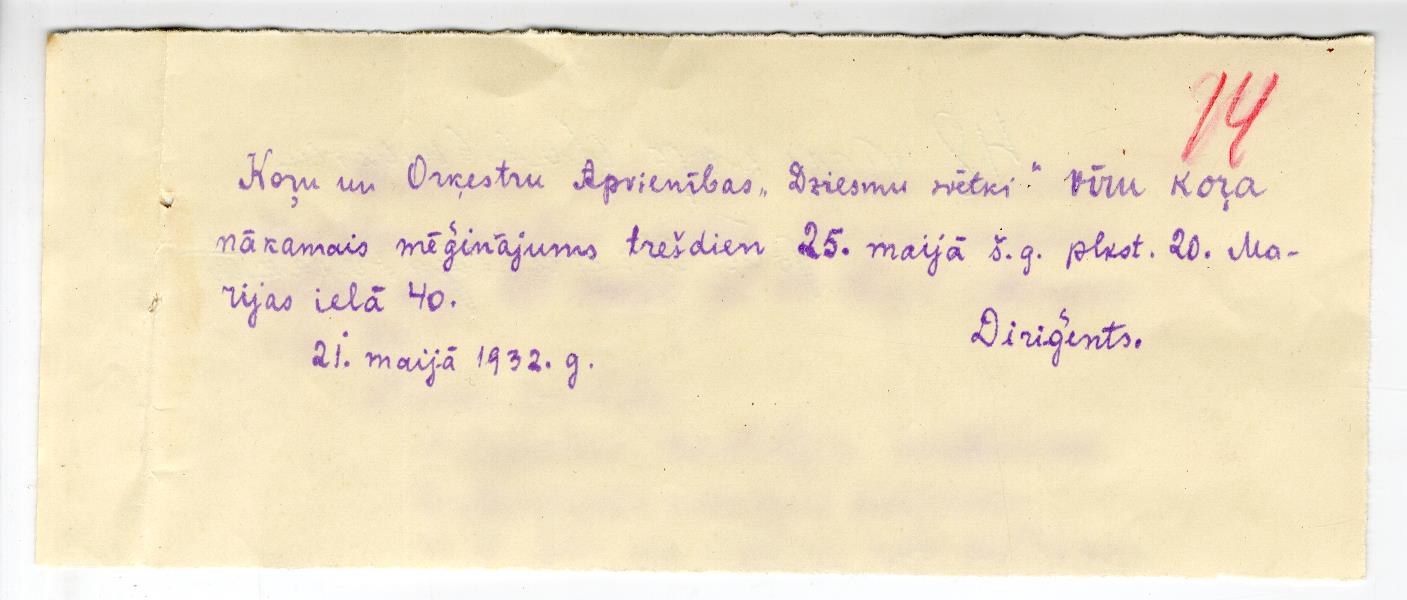 14
Koŗu un Orķestru Apvienības „Dziesmu svētki“ vīru koŗa
nākamais mēģinājums trešdien 25. maijā š.g. plkst. 20. Ma-
rijas ielā 40.
Diriģents.
21. maijā 1932. g.